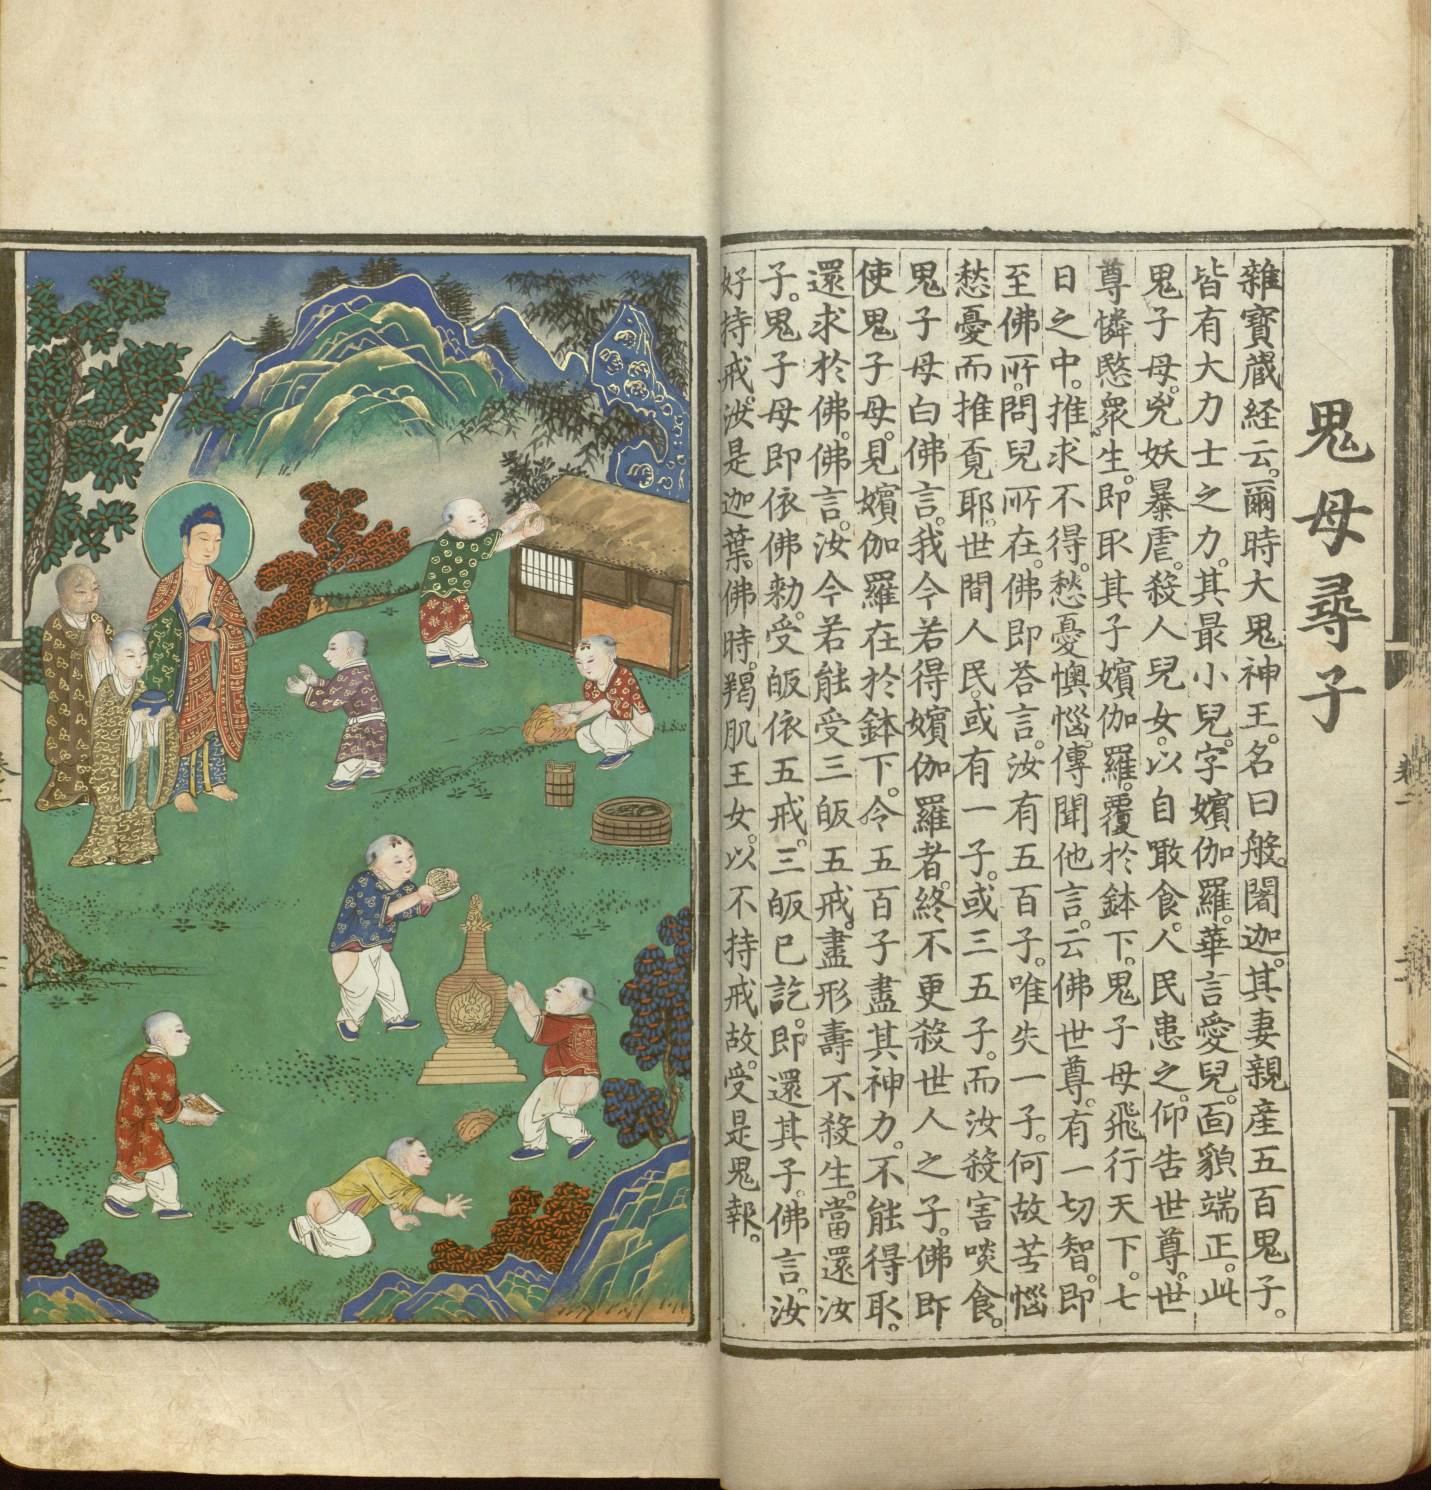 鬼母尋子
雜寶藏経云。爾時大鬼神王。名曰般闍迦。其妻親産五百鬼子。
皆有大力士之力。其最小兒。字嬪伽羅。華言愛兒。面貌端正。此
鬼子母。兇妖暴虐。殺人兒女。以自噉食。人民患之。仰告世尊。世
尊憐愍衆生。即取其子嬪伽羅。覆於鉢下。鬼子母飛行天下。七
日之中。推求不得。愁憂懊惱。傳聞他言。云佛世尊。有一切智。即
至佛所。問兒所在。佛即荅言。汝有五百子。唯失一子。何故苦惱
愁憂而推覔耶。世間人民。或有一子。或三五子。而汝殺害啖食。
鬼子母白佛言。我今若得嬪伽羅者。終不更殺世人之子。佛即
使鬼子母。見嬪伽羅在於鉢下。令五百子盡其神力。不能得取。
還求於佛。佛言。汝今若能受三皈五戒。盡形壽不殺生。當還汝
子。鬼子母即依佛勑。受皈依五戒。三皈已訖。即還其子。佛言。汝
好持戒。汝是迦葉佛時。羯肌王女。以不持戒故。受是鬼報。
卷二